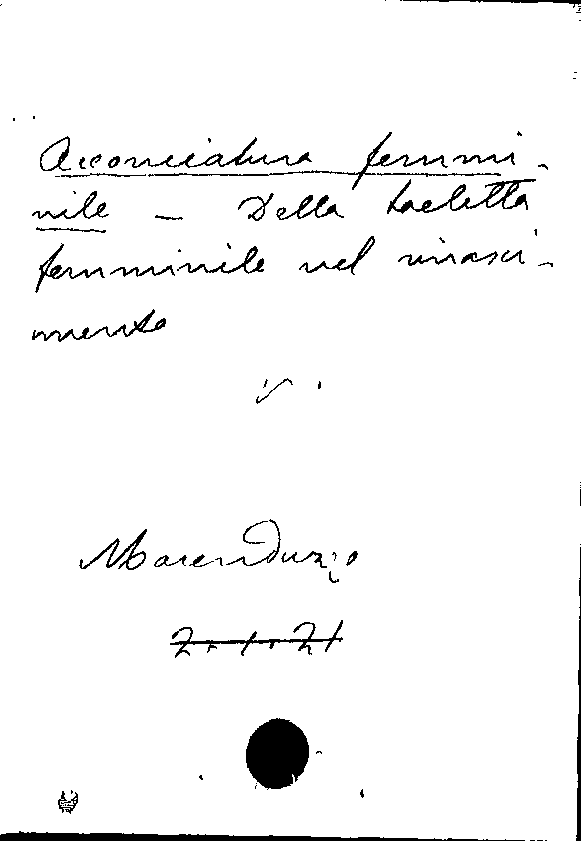 Acconciatura femmi-
nile - Della toeletta
femminile nel rinasci-
mento
v.
Marenduzzo
2. 1. 21